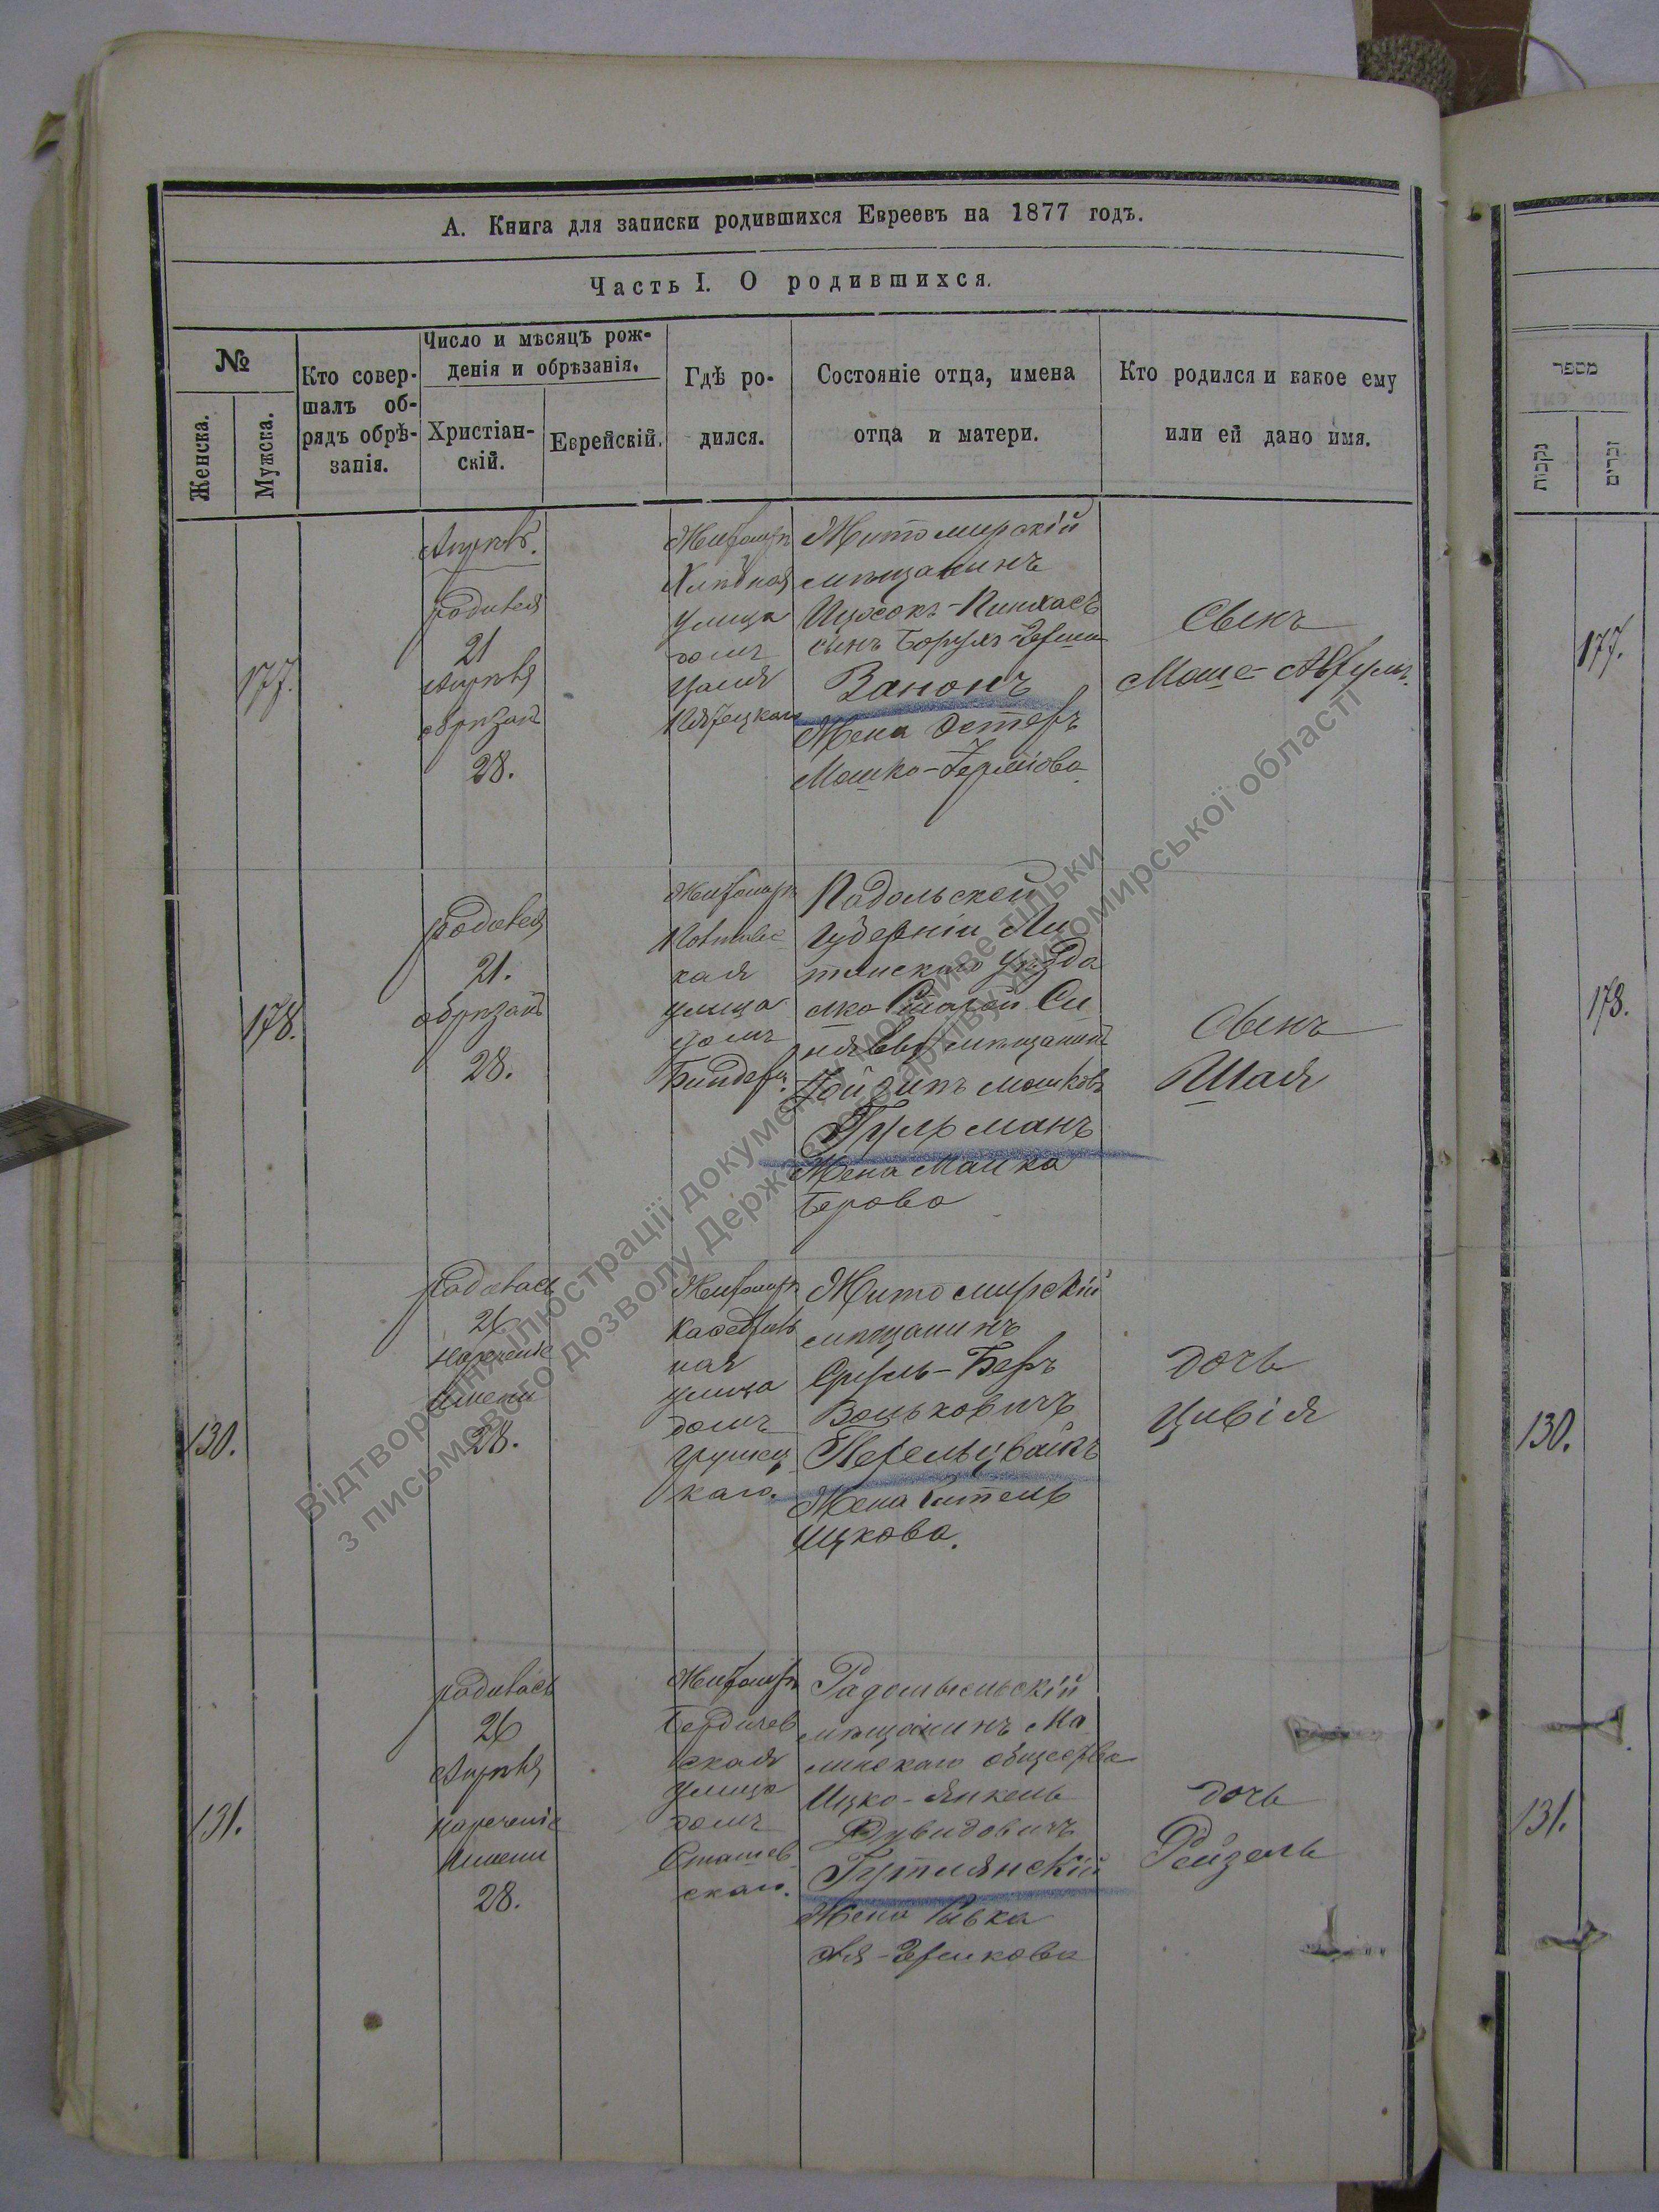 А. Книга для записки родившихся Евреевъ на 1877 годъ.
Часть I. О родившихся.
№
Женска.
Мужска.
Кто совер-
шалъ об-
рядъ обрѣ-
занія.
Число и мѣсяцъ рож-
денія и обрѣзанія.
Христіан-
скій.
Еврейскій.
Гдѣ ро-
дился.
Состояніе отца, имена
отца и матери.
Кто родился и какое ему
или ей дано имя.
177.
Апрѣль.
родился
21
Апрѣля
обрѣзанъ
28.
Житомиръ
улица
домъ
Житомирскій
мѣщанинъ
Ицхокъ-Пинхасъ
сынъ Борухъ-Герша
Занонъ
Жена Эстеръ
Мошко-
Сынъ
Моше-Аврумъ.
178.
родился
21.
обрѣзанъ
28.
Житомиръ
кая
улица
домъ
Подольской
Губерніи Ли-
тинскаго уѣзда
Старой Си
нявы мѣщанинъ
Мошковъ
Гульманъ
Жена Малка
Берова
Сынъ
Шая
130.
родилась
26
нареченіе
имени
28.
Житомиръ
Кафедраль
ная
улица
домъ
Житомирскій
мѣщанинъ
Сруль-Беръ
Вольковичъ
Перельцвайкъ
Жена Гитель
Ицкова.
дочь
Цивія
131.
родилась
26
Апрѣля
нареченіе
имени
28.
Житомиръ
Бердичев
ская
улица
домъ
Сташев-
скаго.
Радомысльскій
мѣщанинъ Ма
линскаго общества
Ицко-Янкель
Дувидовичъ
Гутлянскій
Жена Ривка
дочь
Рейзель
מספר
נקבות
זכרים
177.
178.
130.
131.
Відтворення ілюстрації документу можливе тільки
з письмового дозволу Державного архіву Житомирської області